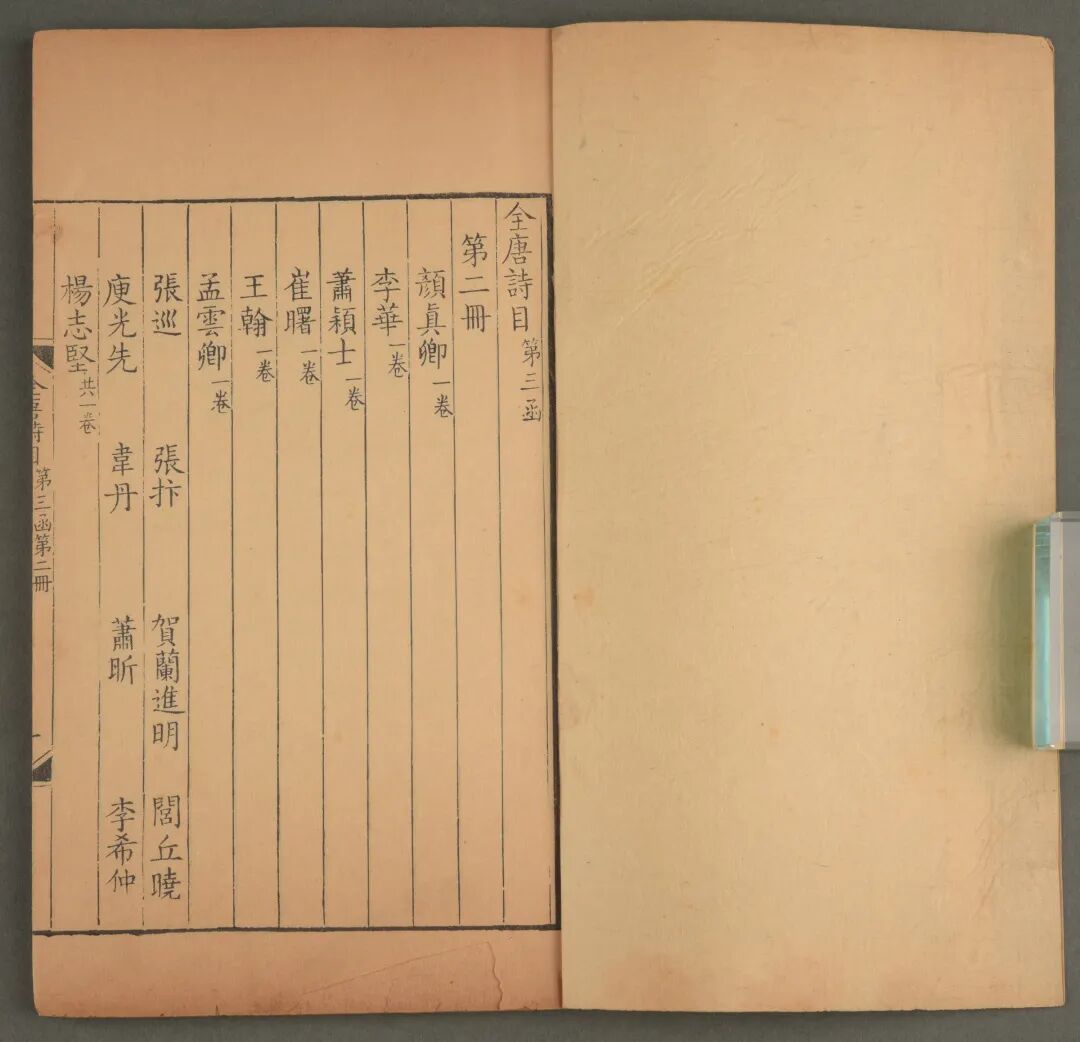 全唐詩目 第三函
第二冊
顏眞卿 一卷
李華 一卷
蕭穎士 一卷
崔曙 一卷
王翰 一卷
孟雲卿 一卷
張巡 張抃 賀蘭進明 閭丘曉
庾光先 韋丹 蕭昕 李希仲
楊志堅 共一卷
全唐詩目 第三函第二冊 一